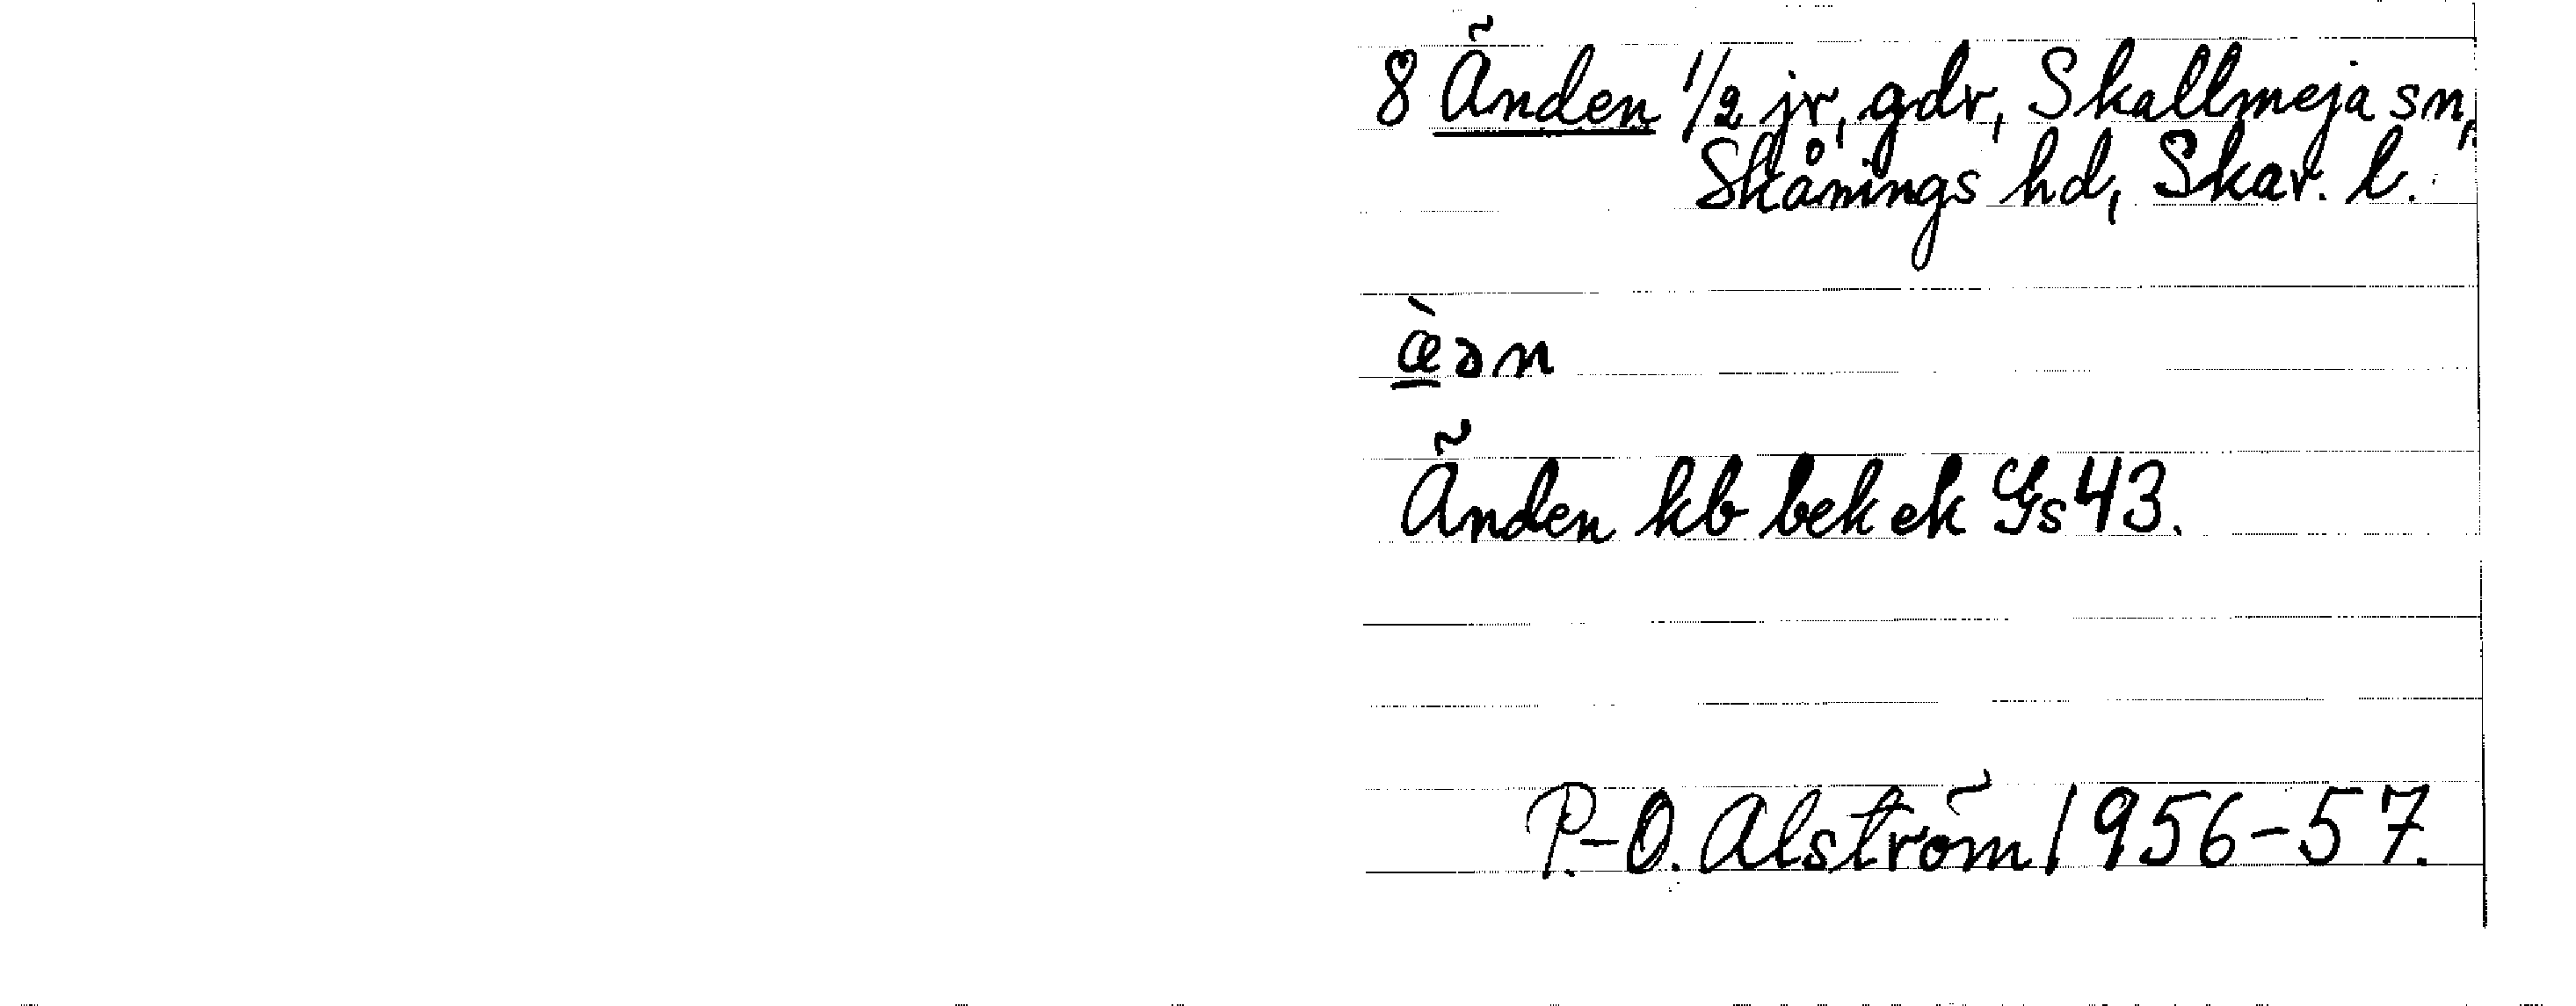 8 Änden 1/2 jr, gdr, Skallmeja sn,
Skånings hd, Skar. l.
æ̀ən
Änden kb bek ek Gs 43.
P.-O. Alström 1956-57.